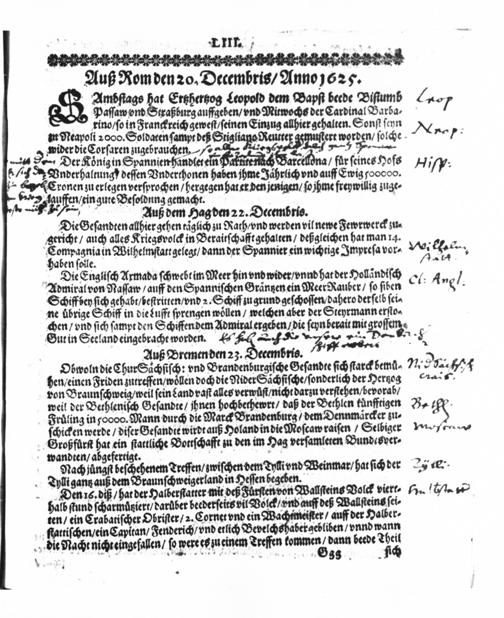 LIII.
Auß Rom den 20. Decembris/ Anno 1625.
SAmbstags hat Ertzhertzog Leopold dem Bapst beede Bistumb
Passaw vnd Straßburg auffgeben/ vnd Mitwochs der Cardinal Barba-
rino/ so in Franckreich gewest/ seinen Einzug allhier gehalten. Sonst seyn
zu Neapoli 2000. Soldaten sampt deß Stigliano Reutter gemustert worden/ solche
wider die Corsaren zugebrauchen.
Der König in Spannien handlet ein mit Barcellona/ für seines Hofs
Vnderhaltung dessen Vnderthonen haben jhme Jährlich vnd auff Ewig 500000.
Cronen zu erlegen versprochen/ hergegen hat er den jenigen/ so jhme freywillig zuge-
lauffen/ ein gute Besoldung gemacht.
Auß dem Hag den 22. Decembris.
Die Gesandten allhier gehen täglich zu Rath/ vnd werden vil newe Fewrwerck zu-
gericht/ auch alles Kriegsvolck in Beraitschafft gehalten/ deßgleichen hat man 14.
Compagnia in Wilhelmstatt gelegt/ dann der Spannier ein wichtige Impresa vor-
haben solle.
Die Englisch Armada schwebt im Meer hin vnd wider/ vnnd hat der Holländisch
Admiral von Nassaw/ auff den Spannischen Gräntzen ein MeerRauber/ so siben
Schiff bey sich gehabt/ bestritten/ vnd 2. Schiff zu grund geschossen/ dahero derselb sei-
ne übrige Schiff in die Lufft sprengen wöllen/ welchen aber der Steyrmann erst-
chen/ vnd sich sampt den Schiffen dem Admiral ergeben/ die seyn berait mit grossem
Gut in Seeland eingebracht worden.
Auß Bremen den 23. Decembris.
Obwoln die ChurSächsisch: vnd Brandenburgische Gesandte sich starck bemü-
hen/ einen Friden zutreffen/ wöllen doch die NiderSächsische/ sonderlich der Hertzog
von Braunschweig/ weil sein Land vast alles verwüst/ nicht darzu verstehen/ bevorab/
weil der Bethlenisch Gesandte/ jhnen hochbethewrt/ daß der Bethlen künfftigen
Früling in 50000. Mann durch die Marck Brandenburg/ dem Dennmärcker zu-
schicken werde/ diser Gesandte wirdt auß Holand in die Moscaw raisen/ Selbiger
Großfürst hat ein stattliche Bottschafft zu den im Hag versamleten Bundsver-
wandten/ abgefertigt.
Nach jüngst beschehenem Treffen/ zwischen dem Tylli vnd Weinmar/ hat sich der
Tylli gantz auß dem Braunschweigerland in Hessen begeben.
Den 16. diß/ hat der Halberstatter mit deß Fürsten von Wallsteins Volck viert-
halb stund scharmützirt/ darüber beederseits vil Volck/ vnd auff deß Wallsteins sei-
ten/ ein Crabatischer Obrister/ 2. Cornet vnd ein Wachtmeister/ auff der Halber-
stattischen/ ein Capitan/ Fenderich/ vnd etlich Bevelchshaber gebliben/ vnnd wann
die Nacht nicht eingefallen/ so were es zu einem Treffen kommen/ dann beede Theil
Ggg sich
Leop
Neap:
Hisp:
Wilhelm
statt.
Cl: Angl.
Nid Sächsisch
crais.
Bethl:
Moscaw
Tylli:
Halbstatt